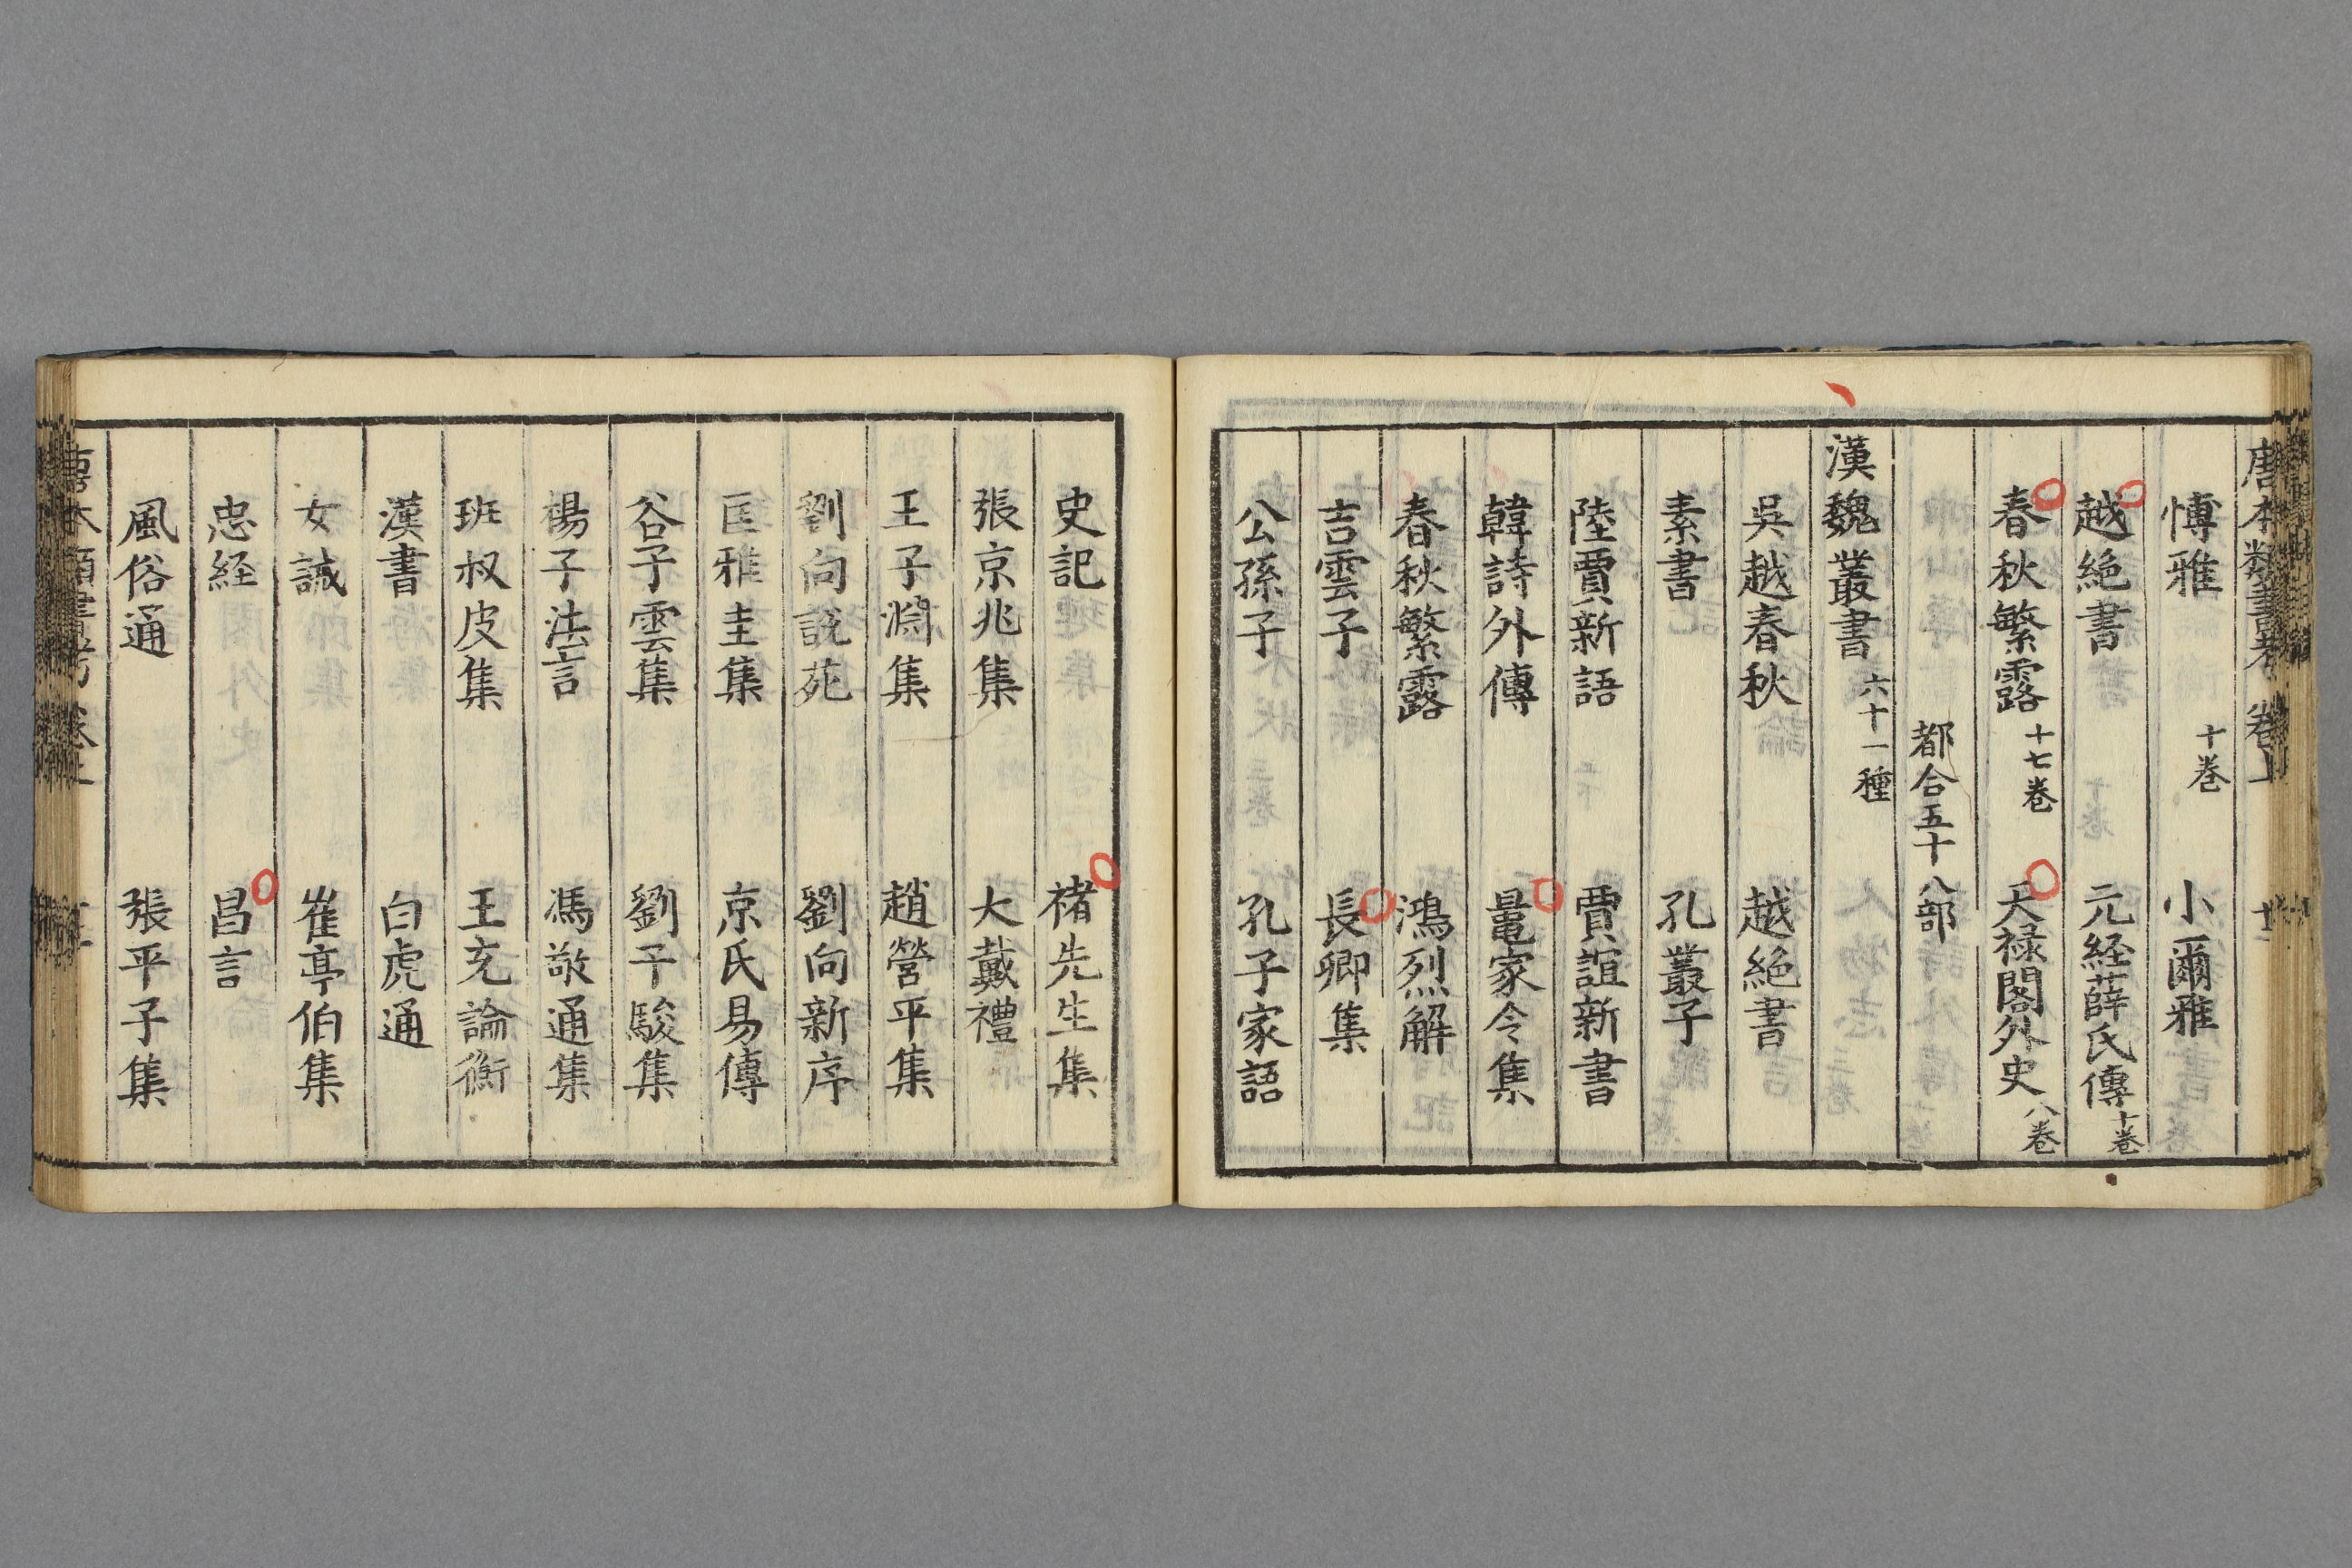 唐本類書考 卷上
愽雅 十巻 小爾雅
越絶書 元経薛氏傳 十巻
春秋繁露 十七巻 天禄閣外史 八巻
都合五十八部
漢魏叢書 六十一種
吳越春秋 越絶書
素書 孔叢子
陸賈新語 賈誼新書
韓詩外傳 鼂家令集
春秋繁露 鴻烈解
吉雲子 長卿集
公孫子 孔子家語
史記 褚先生集
張京兆集 大戴禮
王子淵集 趙營平集
劉向說苑 劉向新序
匡雅圭集 京氏易傳
谷子雲集 劉子駿集
楊子法言 馮敬通集
班叔皮集 王充論衡
漢書 白虎通
女誡 崔亭伯集
忠経 昌言
風俗通 張平子集